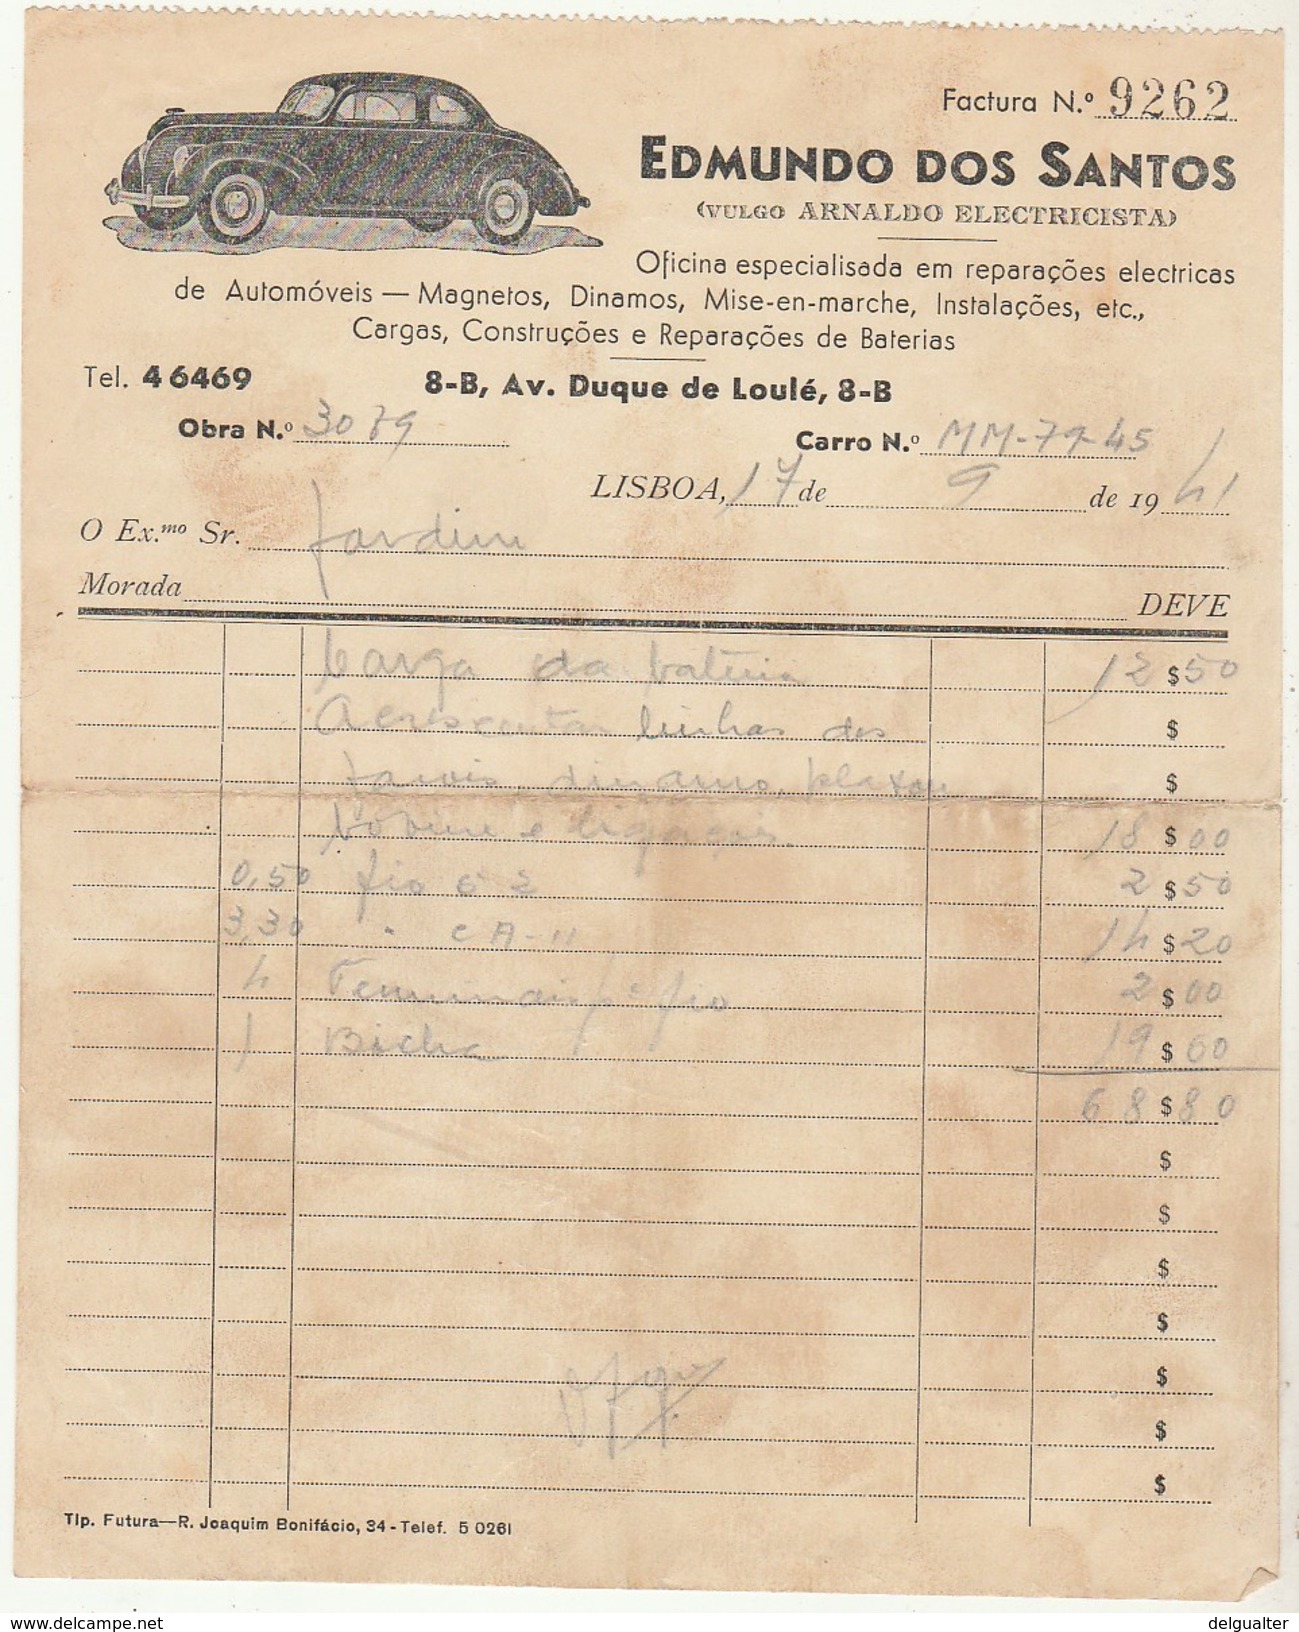 Factura N.º 9262
EDMUNDO DOS SANTOS
(VULGO ARNALDO ELECTRICISTA)
Oficina especialisada em reparações electricas
de Automóveis — Magnetos, Dinamos, Mise-en-marche, Instalações, etc.,
Cargas, Construções e Reparações de Baterias
Tel. 46469 8-B, Av. Duque de Loulé, 8-B
Obra N.º 3079 Carro N.º MM-79-45
LISBOA, 17 de 9 de 1941
O Ex.mo Sr. Jardim
Morada DEVE
Carga da bateria 12 $ 50
Acrescentar linhas dos $
farois, dinamo, $
bobine e ligações. 18 $ 00
0,50 fio 2 $ 50
3,30 " 14 $ 20
4 Terminais fio 2 $ 00
1 Bicha 19 $ 60
68 $ 80
$
$
$
$
$
$
$
Tip. Futura—R. Joaquim Bonifácio, 34 - Telef. 5 0261
www.delcampe.net delgualter